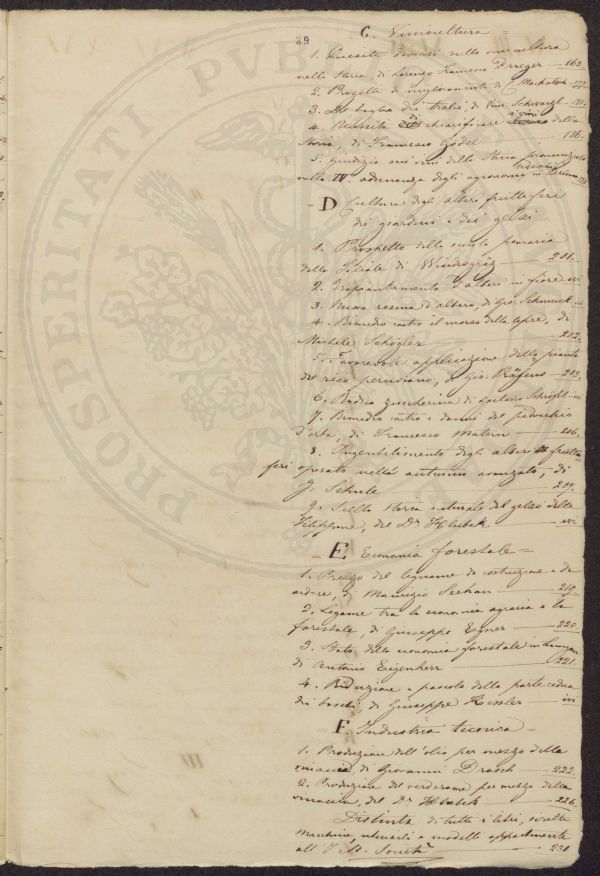 89
C. Vinicultura =
1. Quesite diversi sulla vinicultura
nella Stiria di Lorenzo Kreeger — 163.
2. Progetti di miglioramenti di C. Machatsch
3. Del taglio dei tralci, di Vin. Schwarzl — 181.
4. Necessità di chiarificare i vini della
Stiria, di Francesco Gödel — 186.
5. Giudizio sui vini della Stiria pronunziato
nella IV. adunanza degli agronomi tedeschi in Brünn
- D Cultura degli alberi fruttiferi
dei giardini e dei gelsi
1. Prospetto della scuola pomaria
della Filiale di Windisgräz — 201.
2. Trapiantamento d'alberi in fiore ivi
3. Nuova resina d'albero, di Gio. Schmuck — ivi
4. Rimedio contro il morso della lepre, di
Michele Schögler — 202.
5. Favorevole applicazione della pianta
del riso peruviano, di Gio. — 203.
6. Radice zuccherina di Gaetano — ivi
7. Rimedio contro i danni del pidocchio
d'erba, di Francesco Matern — 206.
8. Ingentilimento degli alberi frutti
feri operato nell' autunno avanzato, di
J. Schule — 207.
9. Sulla storia naturale del gelso delle
Filippine, del Dr. Hlubek — ivi
- E Economia forestale =
1. Prezzo del legname da costruzione e da
ardere, di Maurizio Seehan — 219.
2. Legame tra la economia agraria e la
forestale, di Giuseppe Egner — 220.
3. Stato della economia forestale in
di Antonio Eigenherr — 221.
4. Riduzione a pascolo della parte cedua
dei boschi, di Giuseppe Kessler — ivi
- F. Industria tecnica -
1. Produzione dell'olio per mezzo della
vinaccia, di Giovanni Drasch — 222.
2. Produzione del verderame per mezzo della
vinaccia, del Dr. Hlubek — 226.
Distinta di tutti i libri, scritti
macchine, utensili e modelli appartenente
all' I. R. Società — 231
PROSPERITATI PVBLICAE